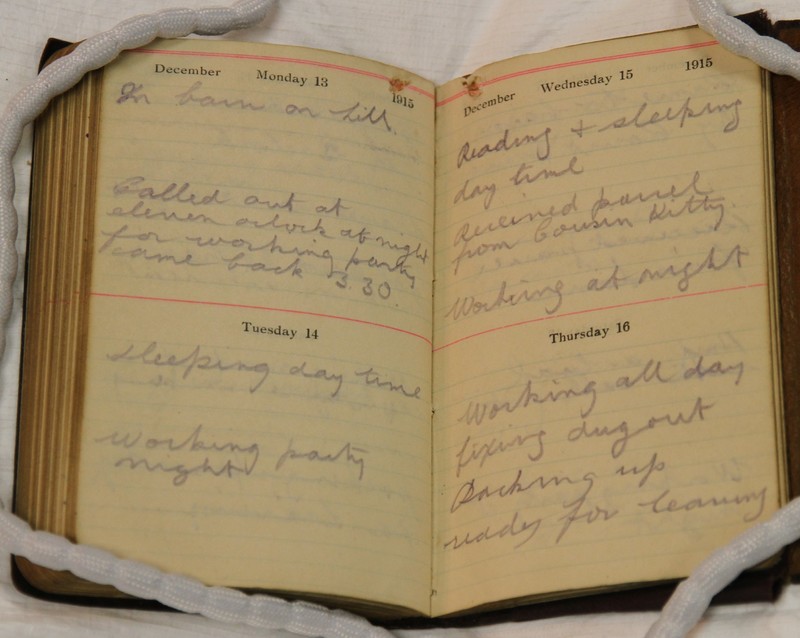 December Monday 13 1915
In barn on hill.
Called out at
eleven oclock at night
for working party
came back 3.30.
Tuesday 14
Sleeping day time
Working party
night
December Wednesday 15 1915
Reading + sleeping
day time
Received parcel
from Cousin Kitty.
Working at night
Thursday 16
Working all day
fixing dugout
Packing up
ready for leaving